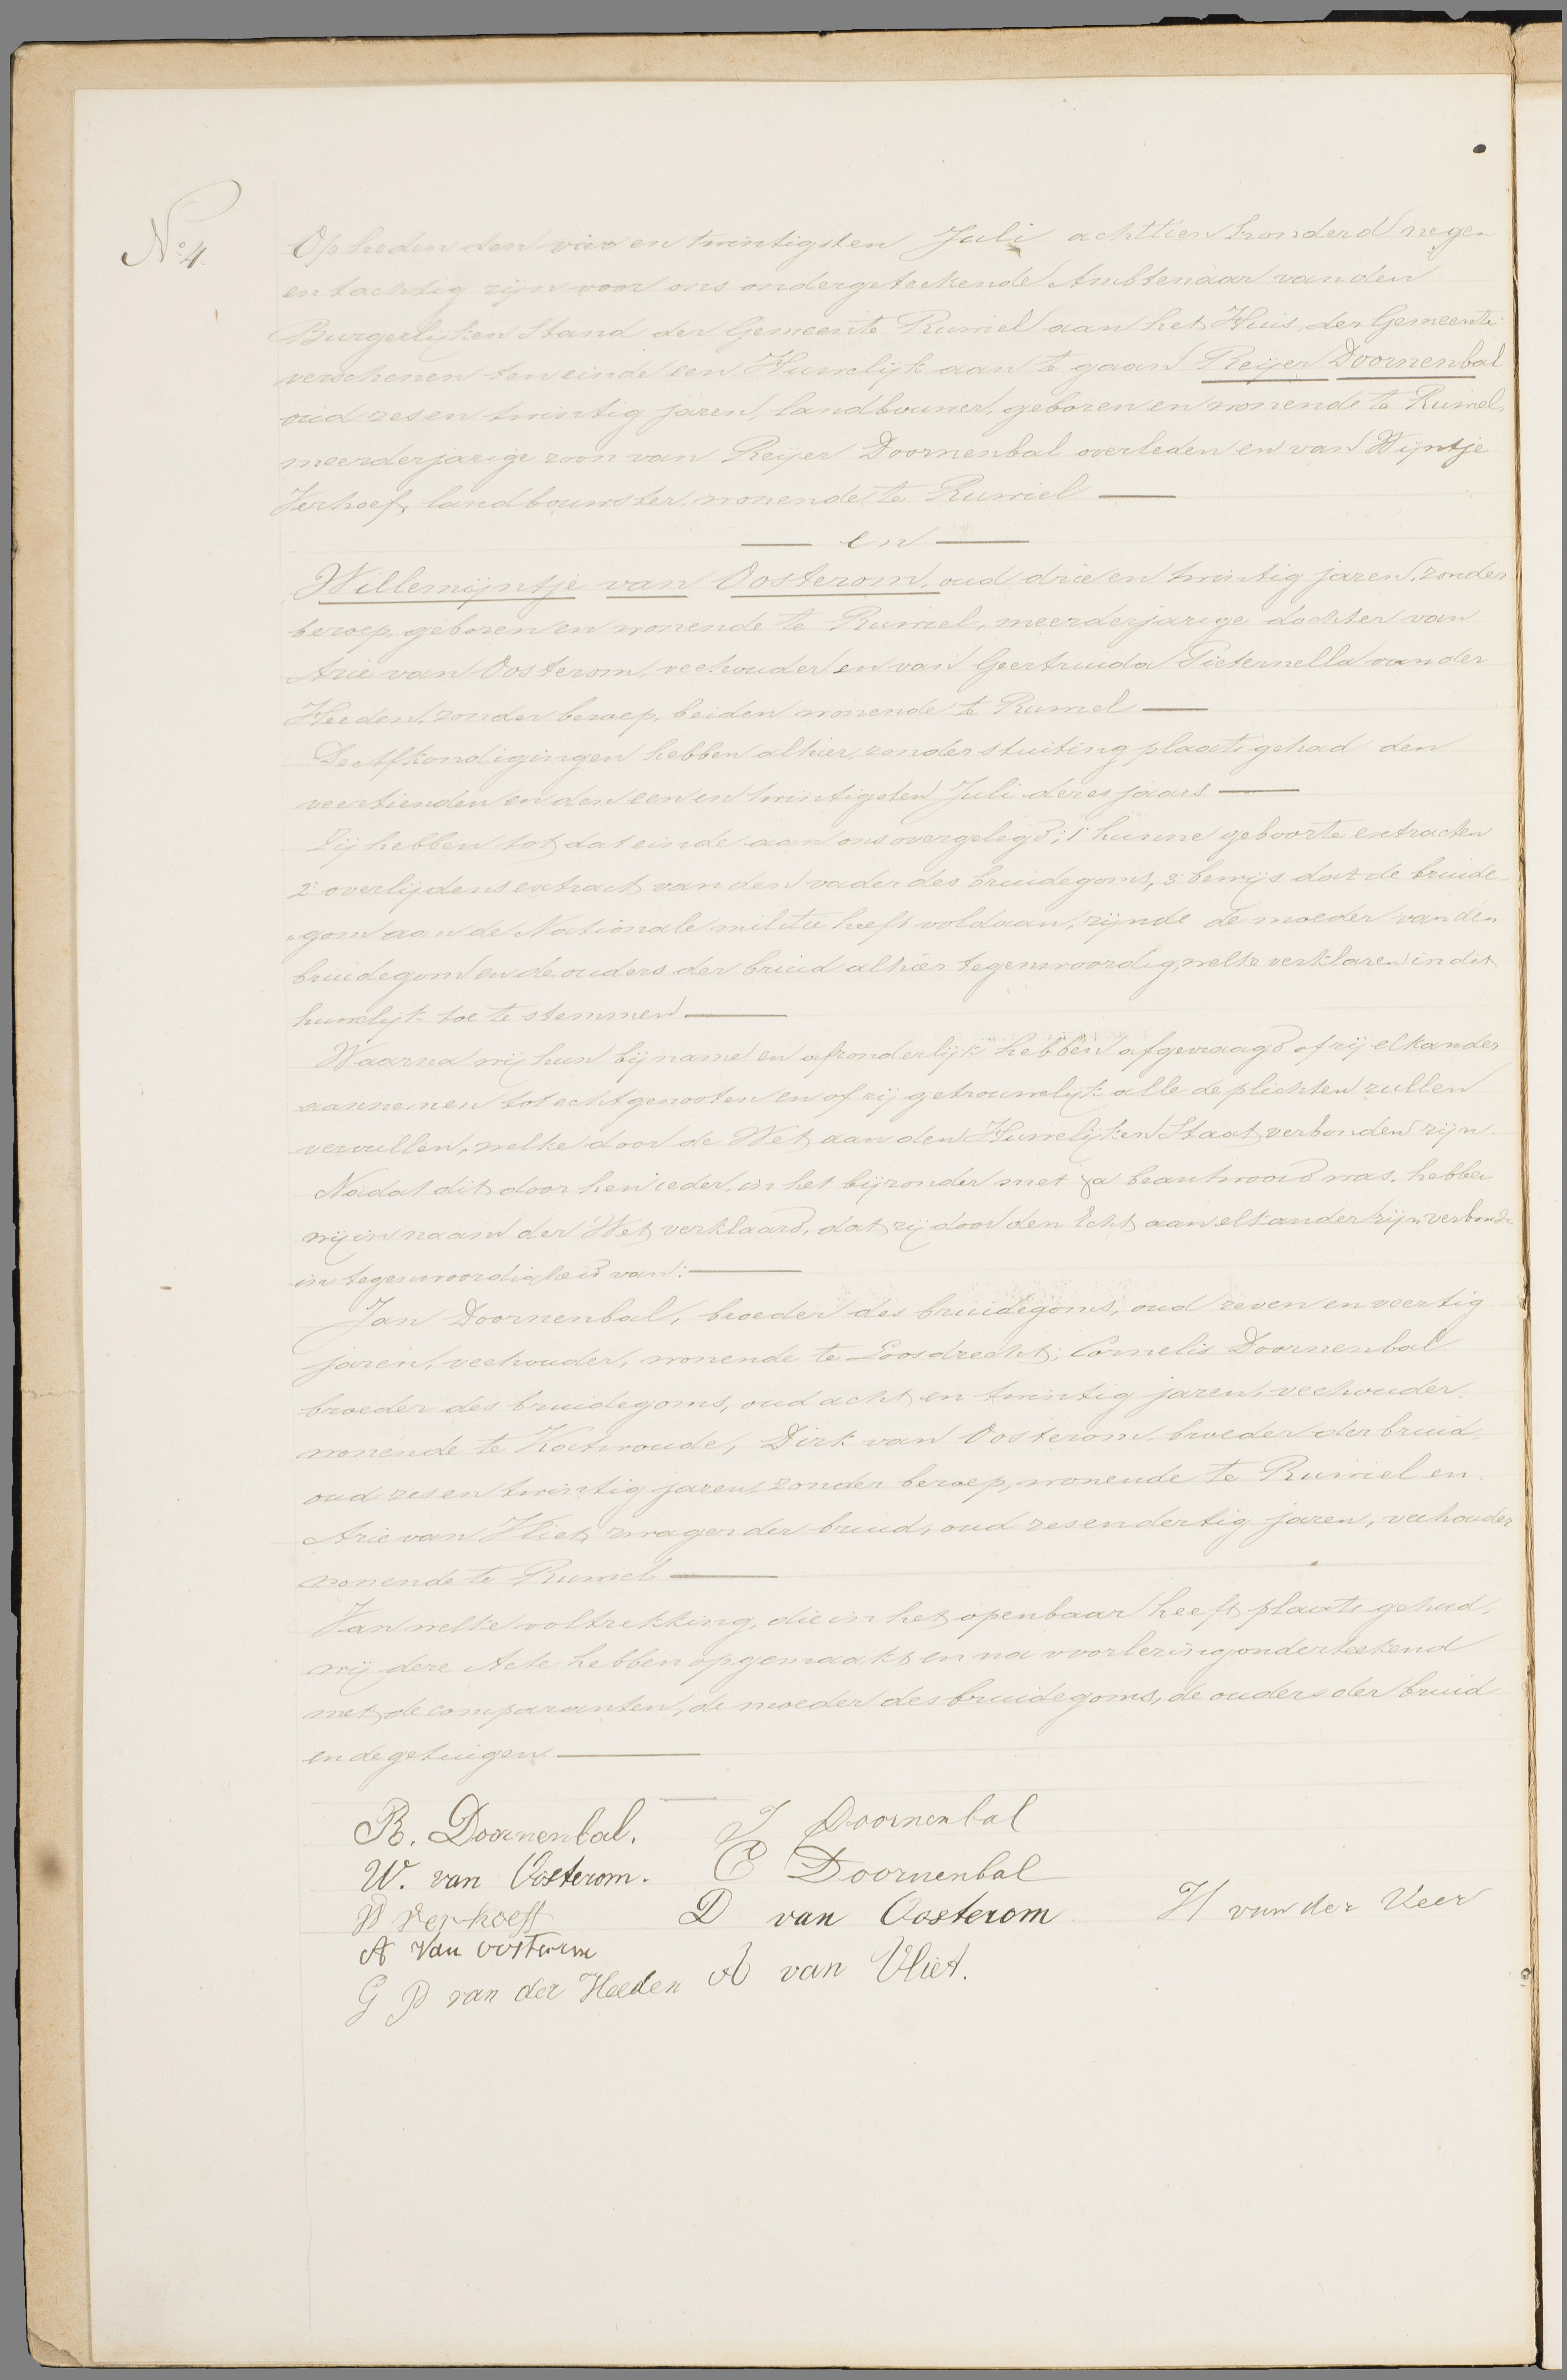 No. 4.
Op heden den vier en twintigsten Juli achttien honderd negen
en tachtig zijn voor ons ondergeteekende Ambtenaar van den
Burgerlijken Stand der Gemeente Ruwiel aan het Huis der Gemeente
verschenen ten einde een Huwelijk aan te gaan Reijer Doornenbal
oud zes en twintig jaren, landbouwer, geboren en wonende te Ruwiel,
meerderjarige zoon van Reijer Doornenbal overleden en van Wijntje
Verhoef, landbouwster, wonende te Ruwiel —
— en —
Willemijntje van Oosterom, oud drie en twintig jaren, zonder
beroep, geboren en wonende te Ruwiel, meerderjarige dochter van
Arie van Oosterom, veehouder en van Geertruida Pieternella van der
Heeden, zonder beroep, beiden wonende te Ruwiel —
De Afkondigingen hebben alhier, zonder stuiting plaats gehad den
veertienden en den een en twintigsten Juli dezes jaars —
Zij hebben tot dat einde aan ons overgelegd; 1° hunne geboorte extracten
2° overlijdens extract van den vader des bruidegoms, 3° bewijs dat de bruide-
"gom aan de Nationale militie heeft voldaan, zijnde de moeder van den
bruidegom en de ouders der bruid alhier tegenwoordig, welke verklaren in dit
huwelijk toe te stemmen —
Waarna wij hun bij name en afzonderlijk hebben afgevraagd of zij elkander
aannemen tot echtgenooten en of zij getrouwelijk alle de plichten zullen
vervullen, welke door de Wet aan den Huwelijken Staat verbonden zijn.
Nadat dit door hen ieder, in het bijzonder met ja beantwoord was, hebben
wij in naam der Wet verklaard, dat zij door den Echt aan elkander zijn verbonden
in tegenwoordigheid van: —
Jan Doornenbal, broeder des bruidegoms, oud zeven en veertig
jaren, veehouder, wonende te Loosdrecht; Cornelis Doornenbal
broeder des bruidegoms, oud acht en twintig jaren, veehouder
wonende te Katwoude, Dirk van Oosterom broeder der bruid
oud zes en twintig jaren, zonder beroep, wonende te Ruwiel en
Arie van Vliet, zwager der bruid, oud zes en dertig jaren, veehouder
wonende te Ruwiel —
Van welke voltrekking, die in het openbaar heeft plaats gehad,
wij deze Acte hebben opgemaakt en na voorlezing onderteekend
met de comparanten, de moeder des bruidegoms, de ouders der bruid
en de getuigen —
R. Doornenbal. J Doornenbal
W. van Oosterom. C Doornenbal
W Verhoeff D van Oosterom H van der Veer
A van oosterom
G P van der Heeden A van Vliet.